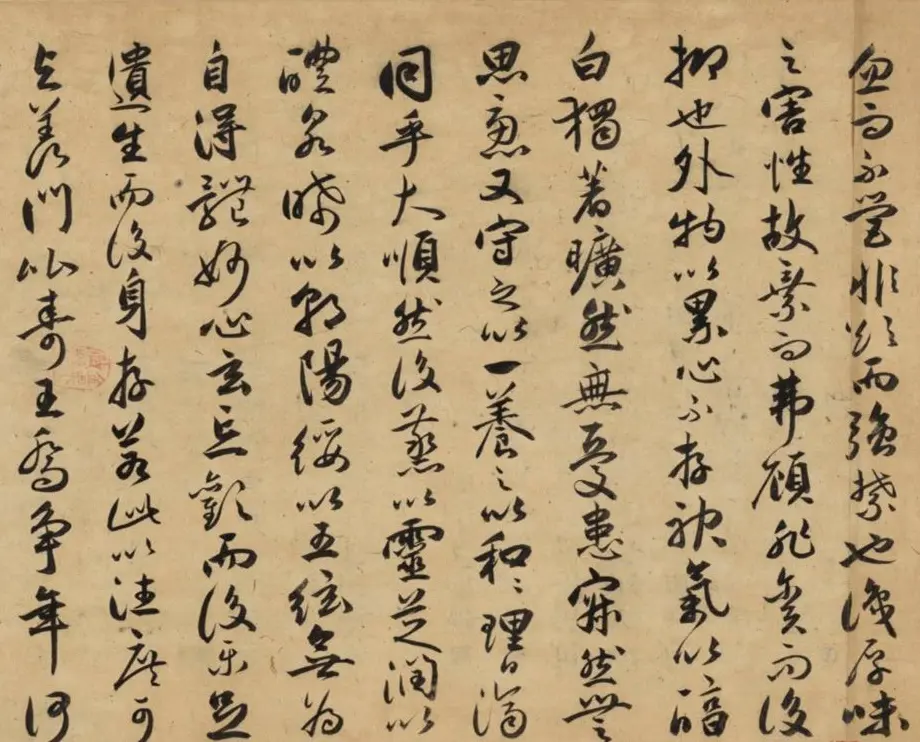 忽而不營非欲而強禁也識厚味
之害性故棄而弗顧非貪而後
抑也外物以累心不存神氣以醇
白獨著曠然無憂患寂然無
思慮又守之以一養之以和〻理日濟
同乎大順然後蒸以靈芝潤以
醴泉晞以朝陽綏以五絃無為
自得體妙心玄忘歡而後樂足
遺生而後身存若此以往庶可
与羨門比壽王喬爭年何